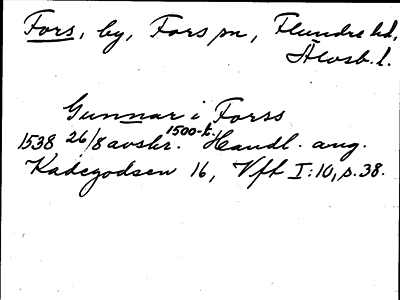 Fors, by, Fors sn, Flundre hd,
Älvsb. l.
Gunnar i Forss
1538 26/8 avskr. 1500-t. Handl. ang.
Kadegodsen 16, Vft I:10, s. 38.